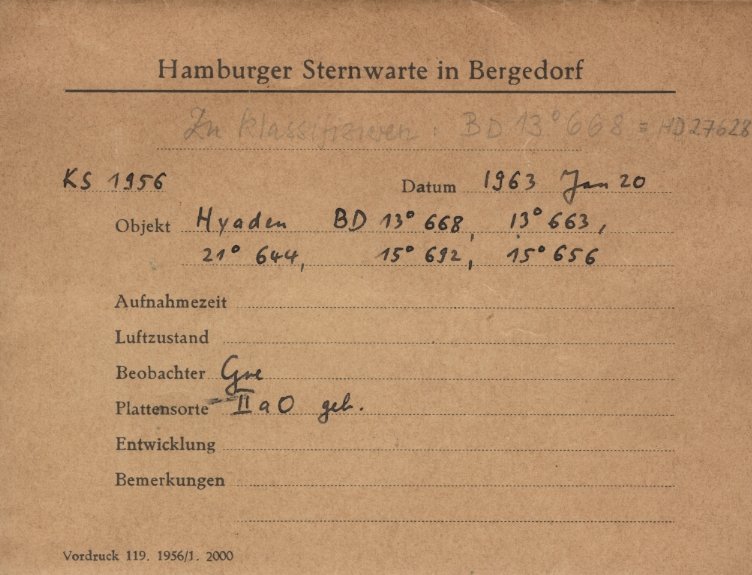 Hamburger Sternwarte in Bergedorf
Zu klassifizieren: BD 13° 668 = HD 27628
KS 1956 Datum 1963 Jan 20
Objekt Hyaden BD 13° 668, 13° 663,
21° 644, 15° 692, 15° 656
Aufnahmezeit
Luftzustand
Beobachter Gre
Plattensorte II a O geh.
Entwicklung
Bemerkungen
Vordruck 119. 1956/1. 2000